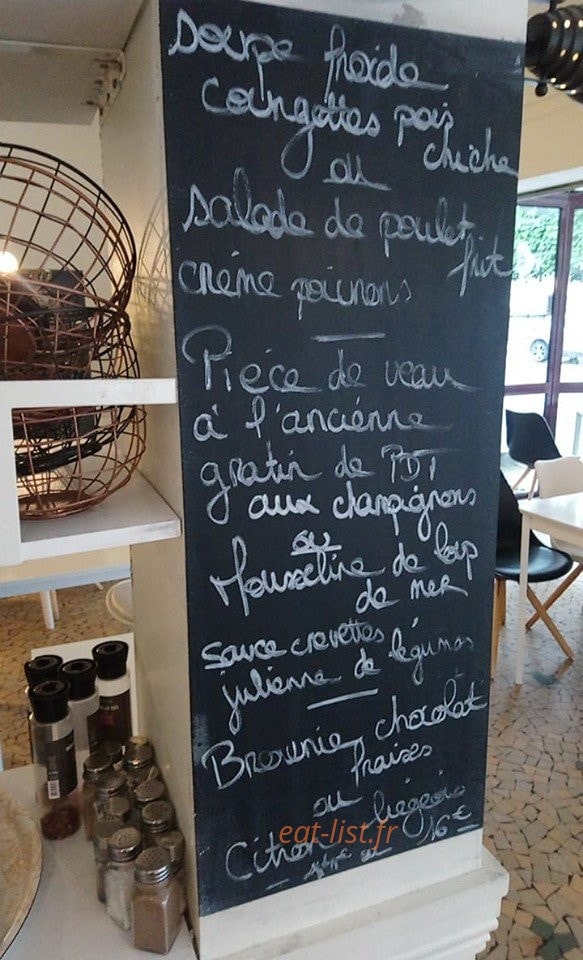 soupe froide
courgettes pois
chiche
ou
salade de poulet
frit
crème poivrons
Pièce de veau
à l'anciénne
gratin de PDT
aux champignons
ou
Mousseline de loup
de mer
sauce crevettes
julienne de légumes
Brownie chocolat
fraises
ou
Citron liégeois
et 16€
eat-list.fr